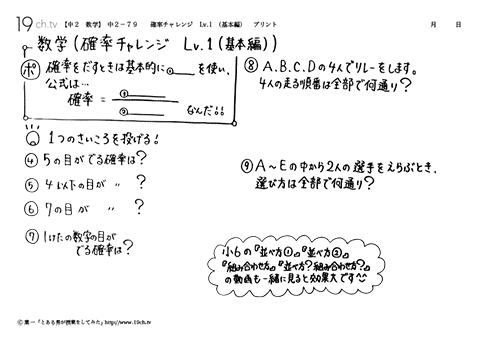 19ch.tv 【中2 数学】 中2-79 確率チャレンジ Lv.1 (基本編) プリント 月 日
数学(確率チャレンジ Lv.1(基本編))
ポ 確率をだすときは基本的に⓪___を使い、
公式は…
確率 = ①___
②___ なんだ!!
1つのさいころを投げる!
④ 5の目がでる確率は?
⑤ 4以下の目が 〃 ?
⑥ 7の目が 〃 ?
⑦ 1けたの数字の目が
でる確率は?
⑧ A、B、C、Dの4人でリレーをします。
4人の走る順番は全部で何通り?
⑨ A~Eの中から2人の選手をえらぶとき、
選び方は全部で何通り?
小6の『並べ方①』『並べ方②』
『組み合わせ方』『並べ方?組み合わせ方?』
の動画も一緒に見ると効果大です^^
Ⓒ 葉一「とある男が授業をしてみた」http://www.19ch.tv